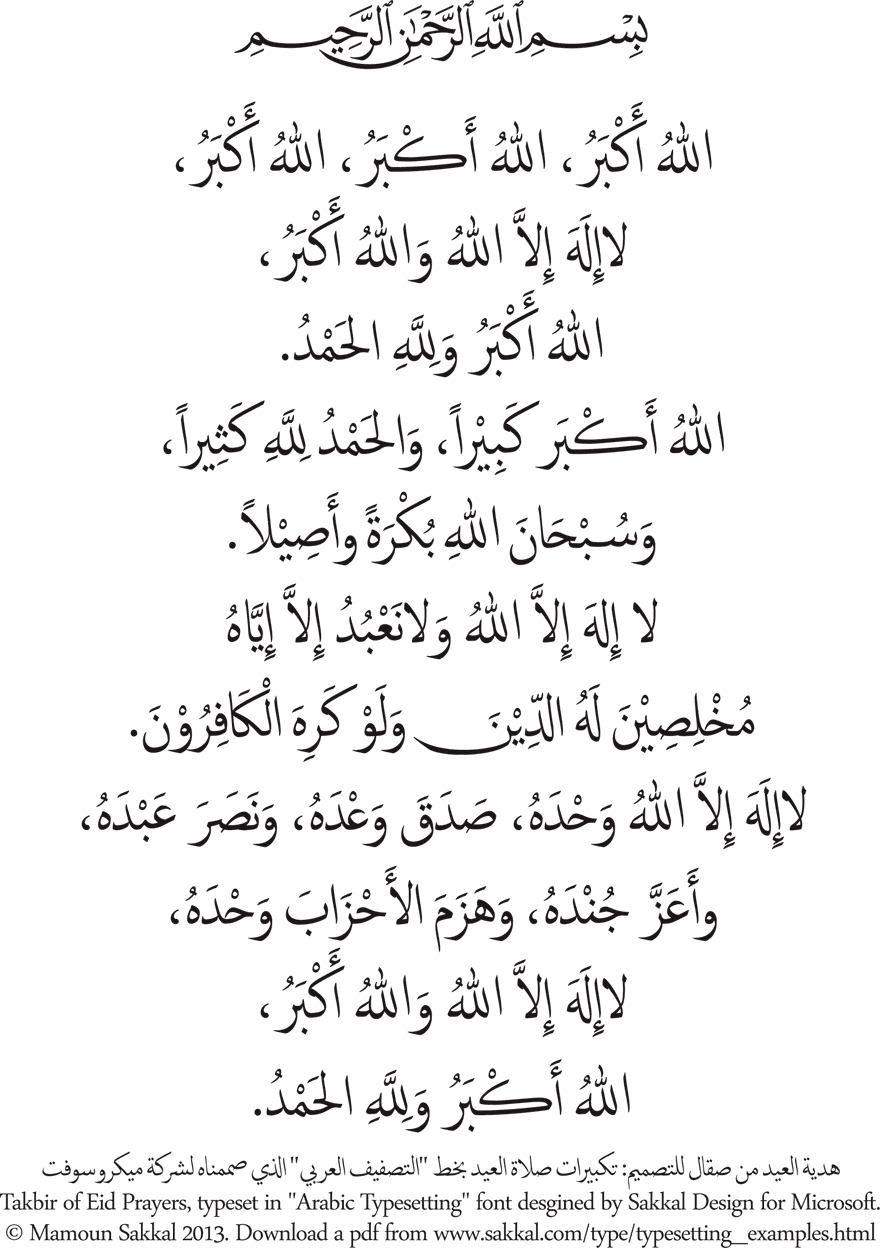 بِسْمِ ٱللَّهِ ٱلرَّحْمَٰنِ ٱلرَّحِيمِ
اللهُ أَكْبَرُ، اللهُ أَكْبَرُ، اللهُ أَكْبَرُ،
لاإِلَهَ إِلاَّ اللهُ وَاللهُ أَكْبَرُ،
اللهُ أَكْبَرُ وَلِلَّهِ الحَمْدُ.
اللهُ أَكْبَر كَبِيْراً، وَالحَمْدُ لِلَّهِ كَثِيراً،
وَسُبْحَانَ اللهِ بُكْرَةً وأَصِيْلاً.
لا إِلهَ إِلاَّ اللهُ وَلانَعْبُدُ إِلاَّ إِيَّاهُ
مُخْلِصِيْنَ لَهُ الدِّيْنَ وَلَوْ كَرِهَ الْكَافِرُوْنَ.
لاإِلَهَ إِلاَّ اللهُ وَحْدَهُ، صَدَقَ وَعْدَهُ، وَنَصَرَ عَبْدَهُ،
وأَعَزَّ جُنْدَهُ، وَهَزَمَ الأَحْزَابَ وَحْدَهُ،
لاإِلَهَ إِلاَّ اللهُ وَاللهُ أَكْبَرُ،
اللهُ أَكْبَرُ وَلِلَّهِ الحَمْدُ.
هدية العيد من صقال للتصميم: تكبيرات صلاة العيد بخط "التصفيف العربي" الذي صممناه لشركة ميكروسوفت
Takbir of Eid Prayers, typeset in "Arabic Typesetting" font desgined by Sakkal Design for Microsoft.
© Mamoun Sakkal 2013. Download a pdf from www.sakkal.com/type/typesetting_examples.html